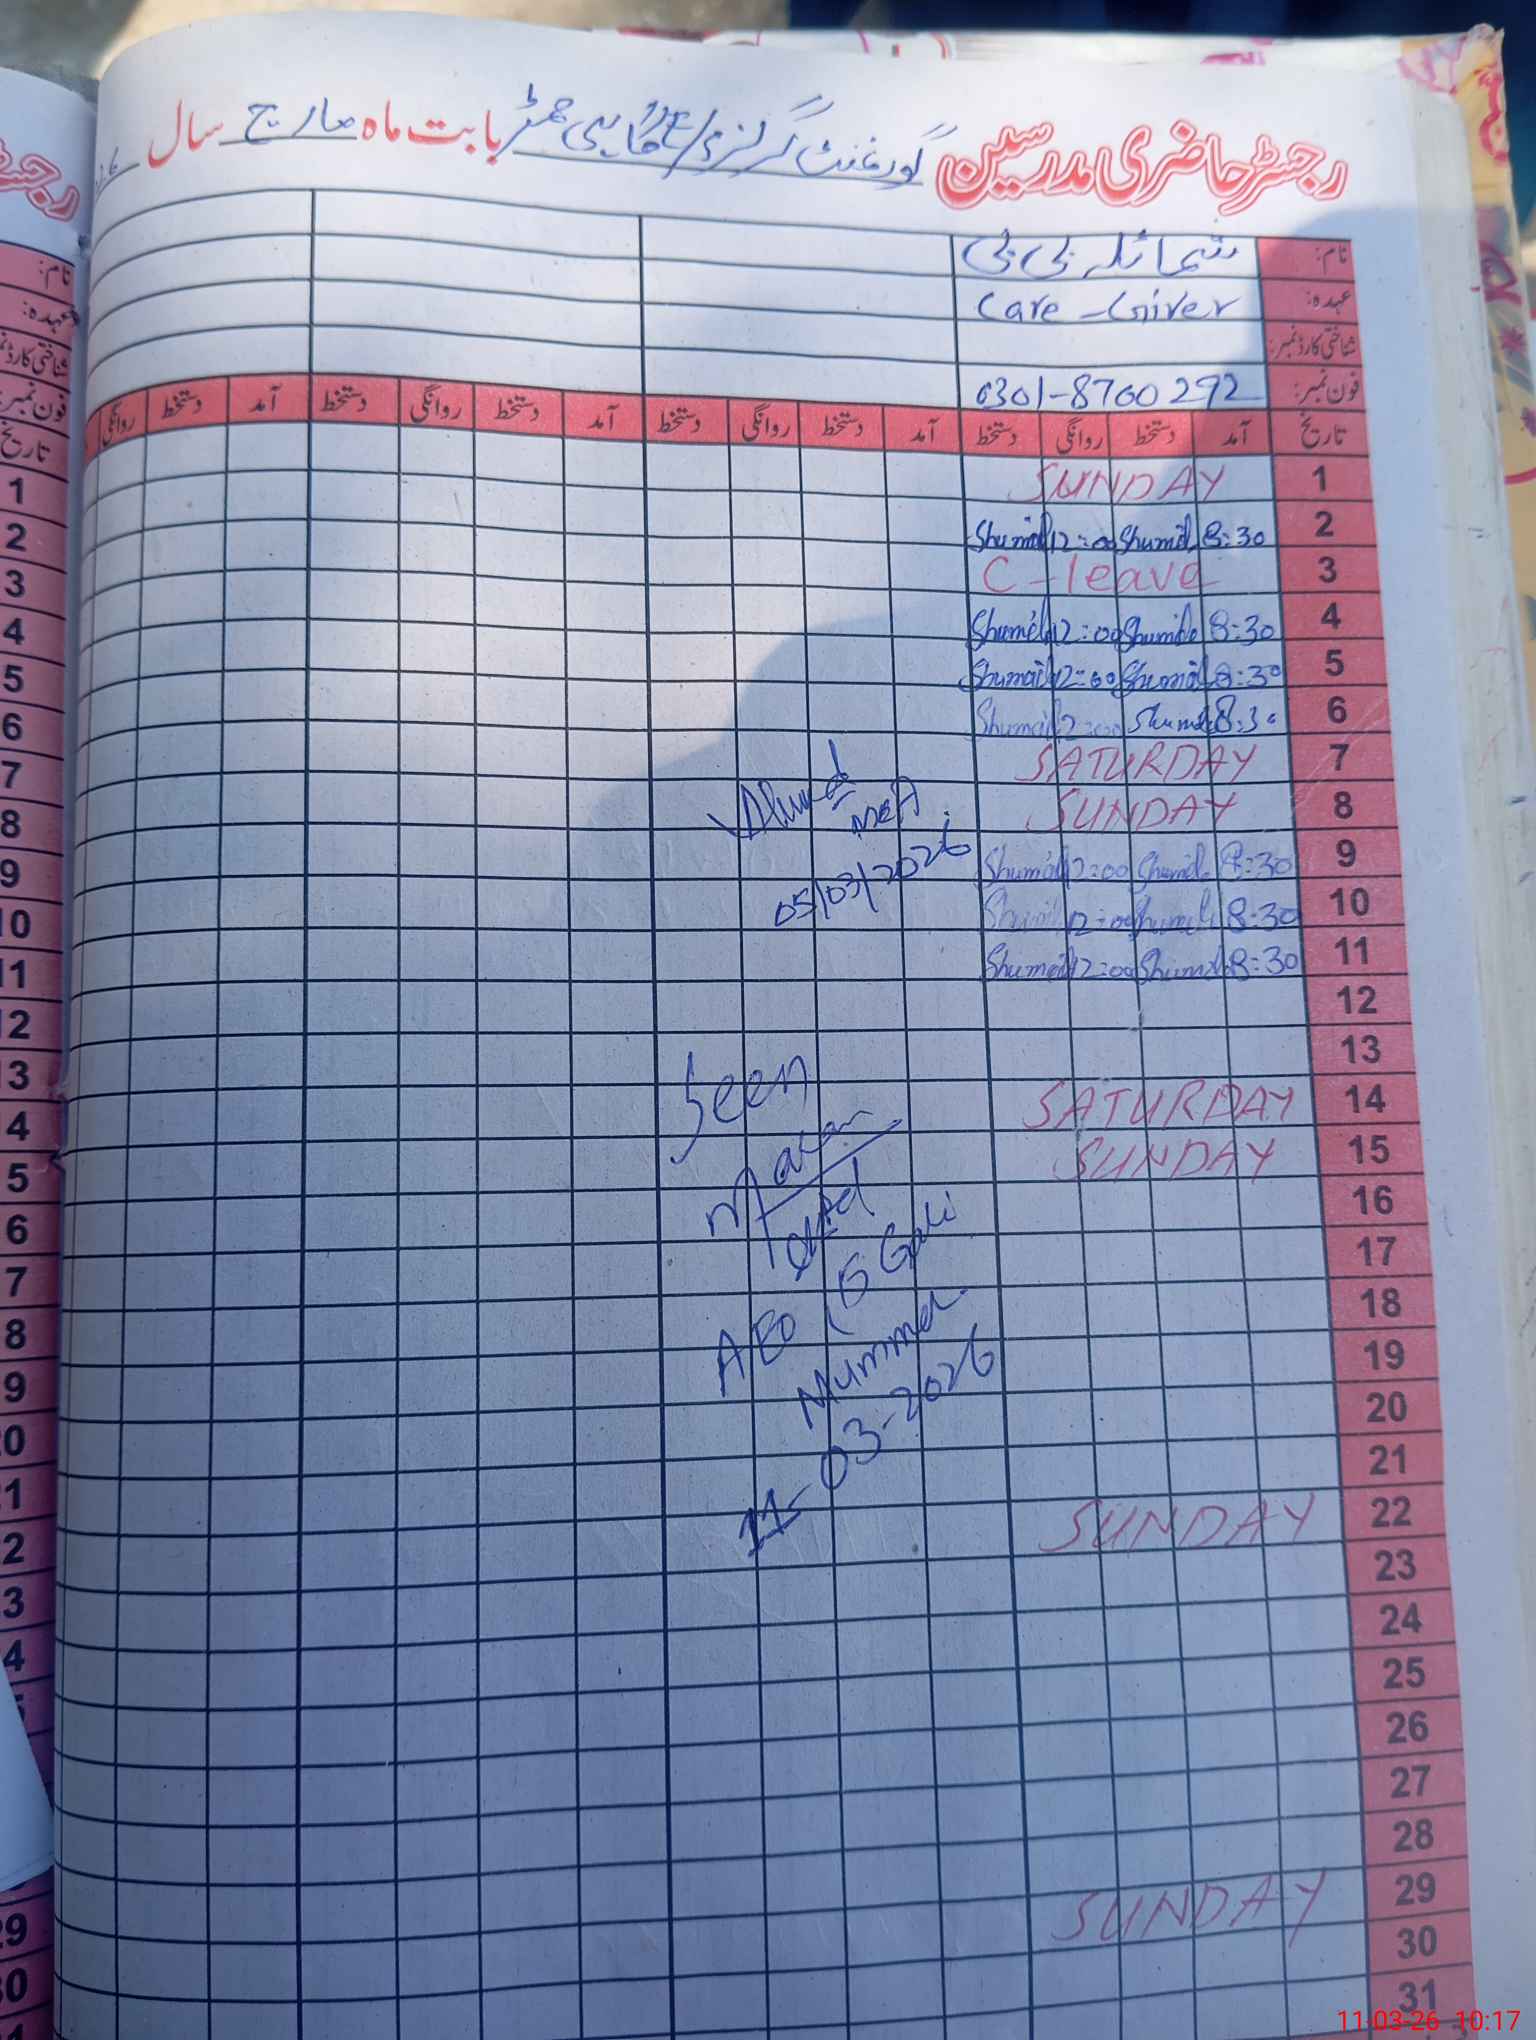 رجسٹر حاضری مدرسین گورنمنٹ گرلز بابت ماہ مارچ سال
نام: شمائلہ بی بی
عہدہ: Care - Giver
شناختی کارڈ نمبر:
فون نمبر: 0301-8700292
تاریخ آمد دستخط روانگی دستخط آمد دستخط روانگی دستخط آمد دستخط روانگی دستخط آمد دستخط روانگی
1 SUNDAY
2 8:30 Shumail 12:00 Shumail
3 C-leave
4 8:30 Shumaila 12:00 Shumail
5 8:30 Shumail 12:00 Shumail
6 8:30 Shumail 12:00 Shumail
7 SATURDAY
8 SUNDAY
9 8:30 Shumail 12:00 Shumail
10 8:30 Shumail 12:00 Shumail
11 8:30 Shumail 12:00 Shumail
Ahmad
MEA
05/03/2026
12
13
14 SATURDAY
15 SUNDAY
Seen
AEO
11-03-2026
16
17
18
19
20
21
22 SUNDAY
23
24
25
26
27
28
29 SUNDAY
30
31
رجسٹر
نام:
عہدہ:
شناختی کارڈ نمبر
فون نمبر:
تاریخ
1
2
3
4
5
6
7
8
9
10
11
12
13
4
5
6
7
8
9
0
1
2
3
4
29
30
11-03-26 10:17